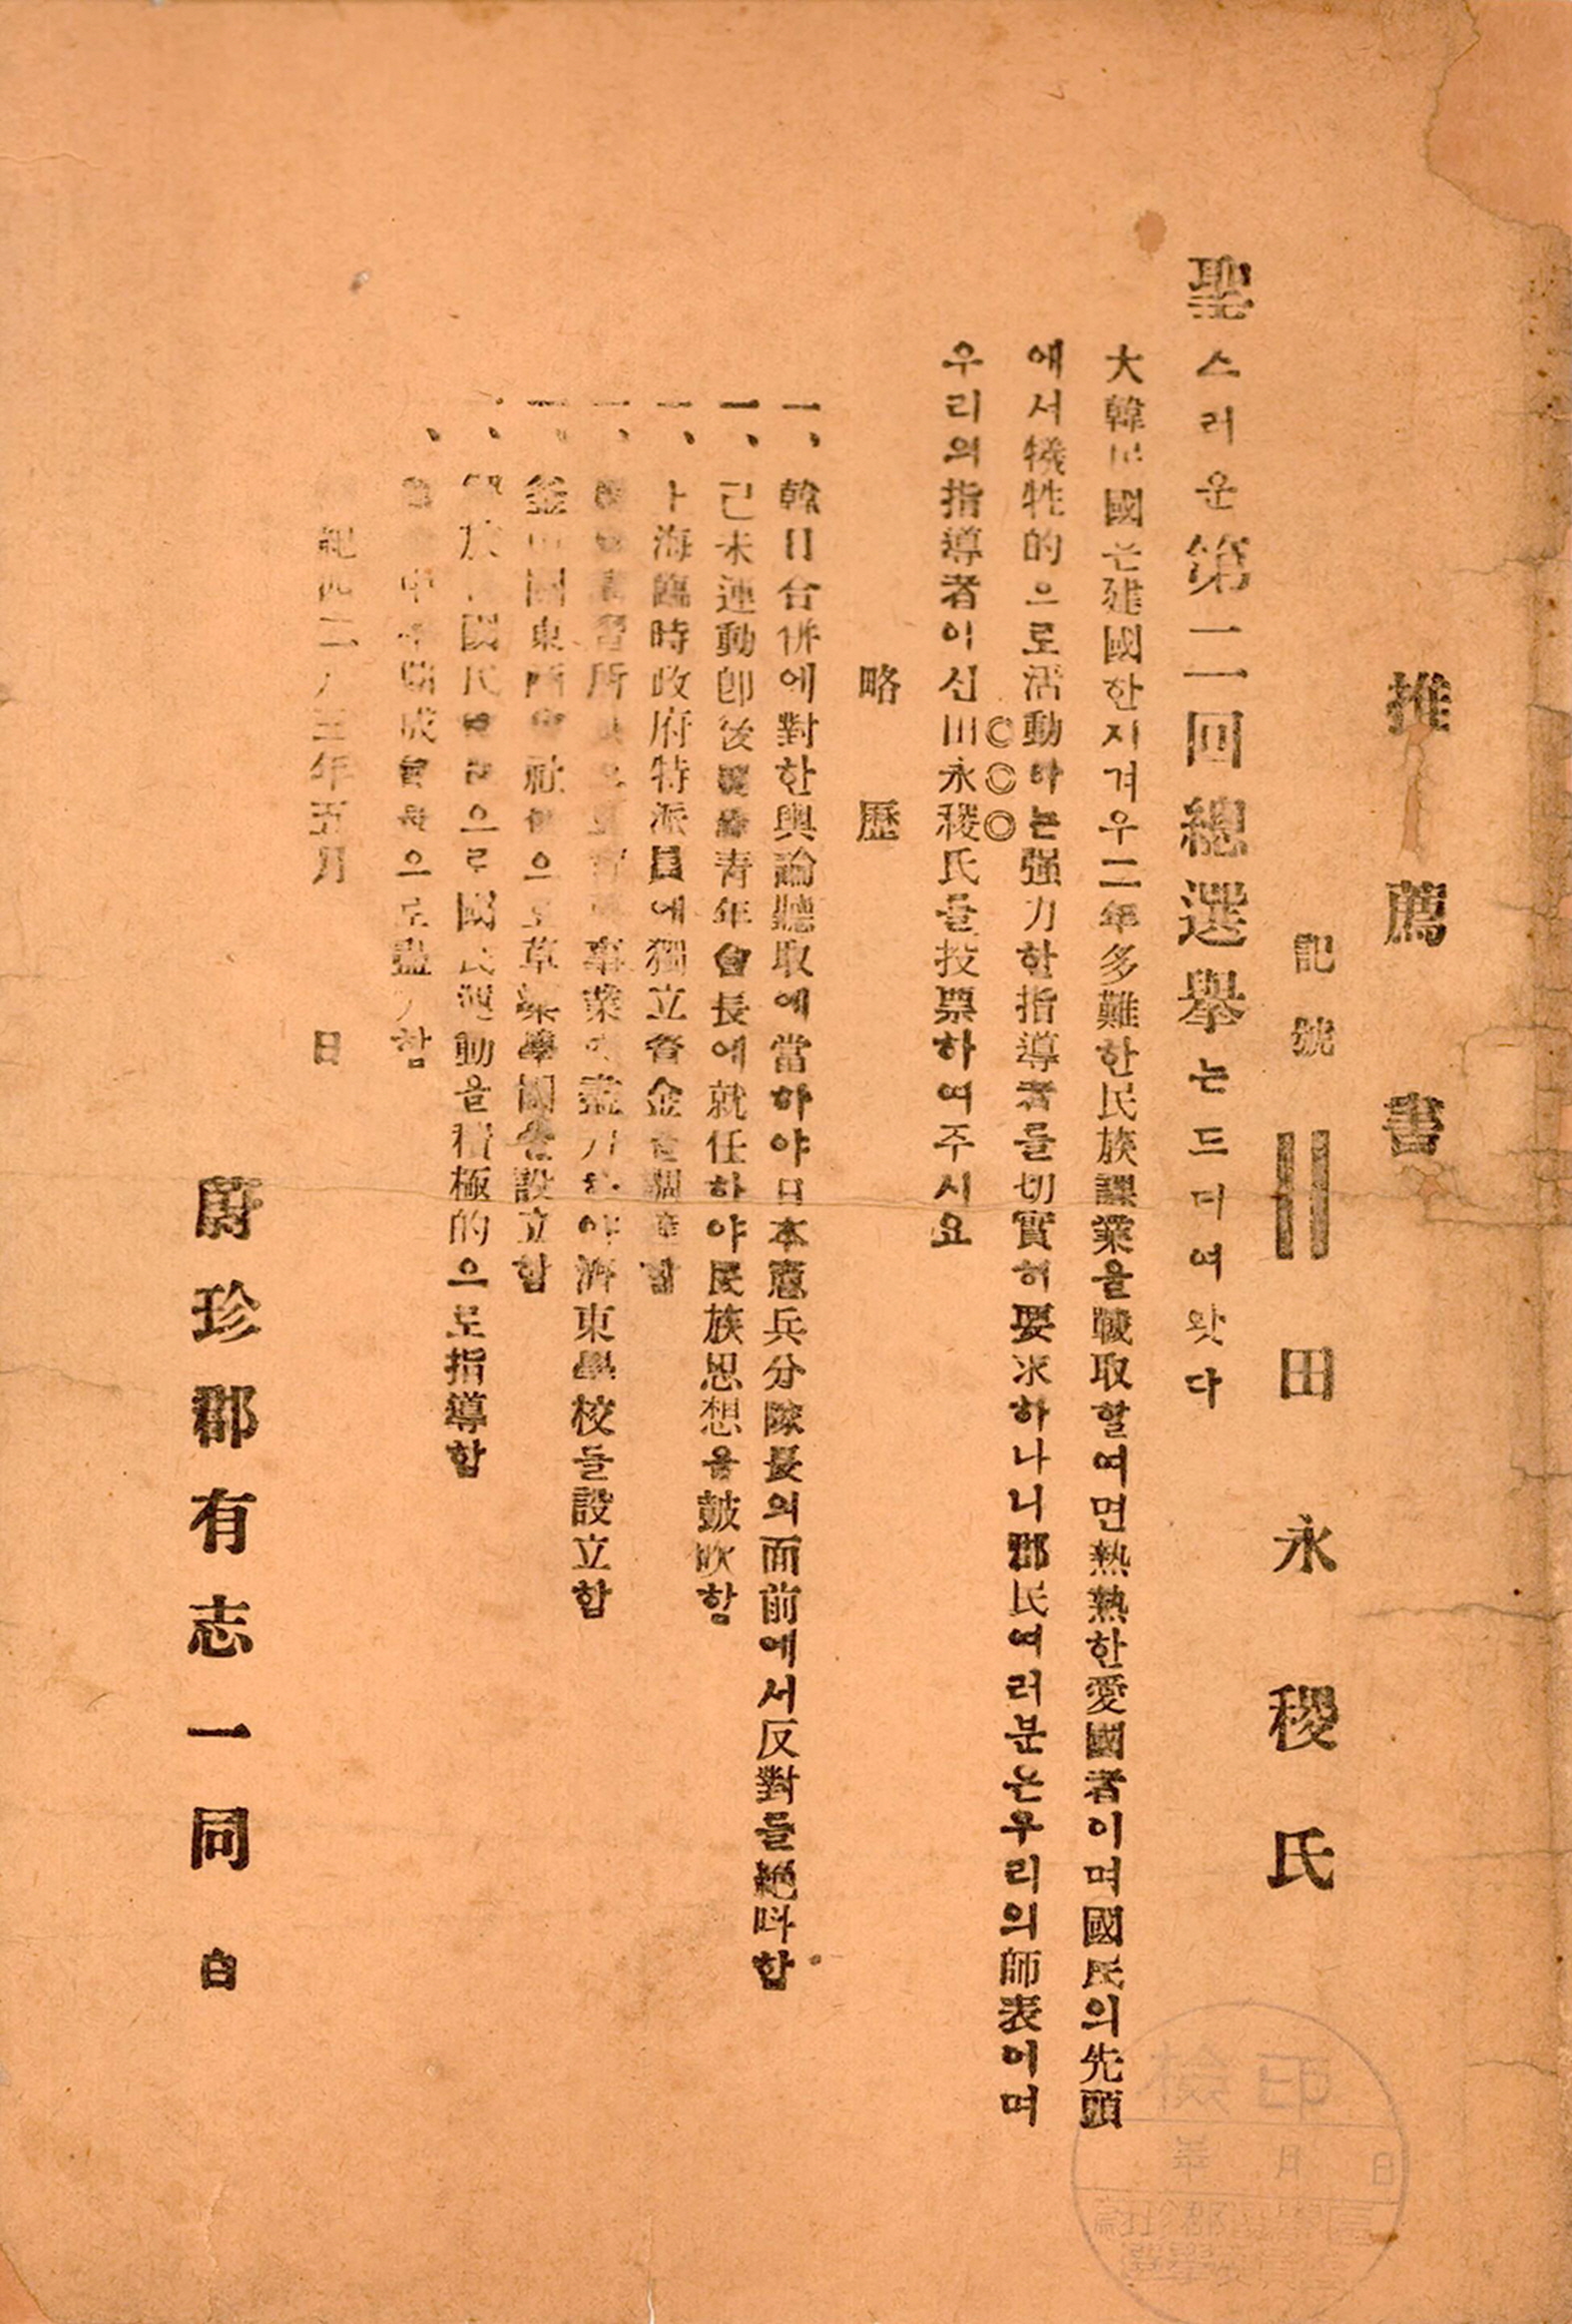 推薦書
記號 || 田永稷氏
聖스러운第二回總選擧는드디여왓다
大韓民國은建國한지겨우二年多難한民族課業을戰取할여면熱熱한愛國者이며國民의先頭
에서犧牲的으로活動하는强力한指導者를切實허要求하나니郡民여러분은우리의師表이며
◎◎◎
우리의指導者이신田永稷氏를投票하여주시요
略歷
一、韓日合併에對한輿論聽取에當하야日本憲兵分隊長의面前에서反對를絶따함
一、己未運動卽後 靑年會長에就任하야民族思想을鼓吹함
一、上海臨時政府特派員에獨立資金을調達함
一、 習所 事業에盡力하야濟東學校를設立함
一、釜山 東 社 으로草梁學園을設立함
、 族 國民 으로國民運動을積極的으로指導함
、 中 期成會 으로盡力함
紀四二八三年五月 日
蔚珍郡有志一同 白
檢印
年 月 日